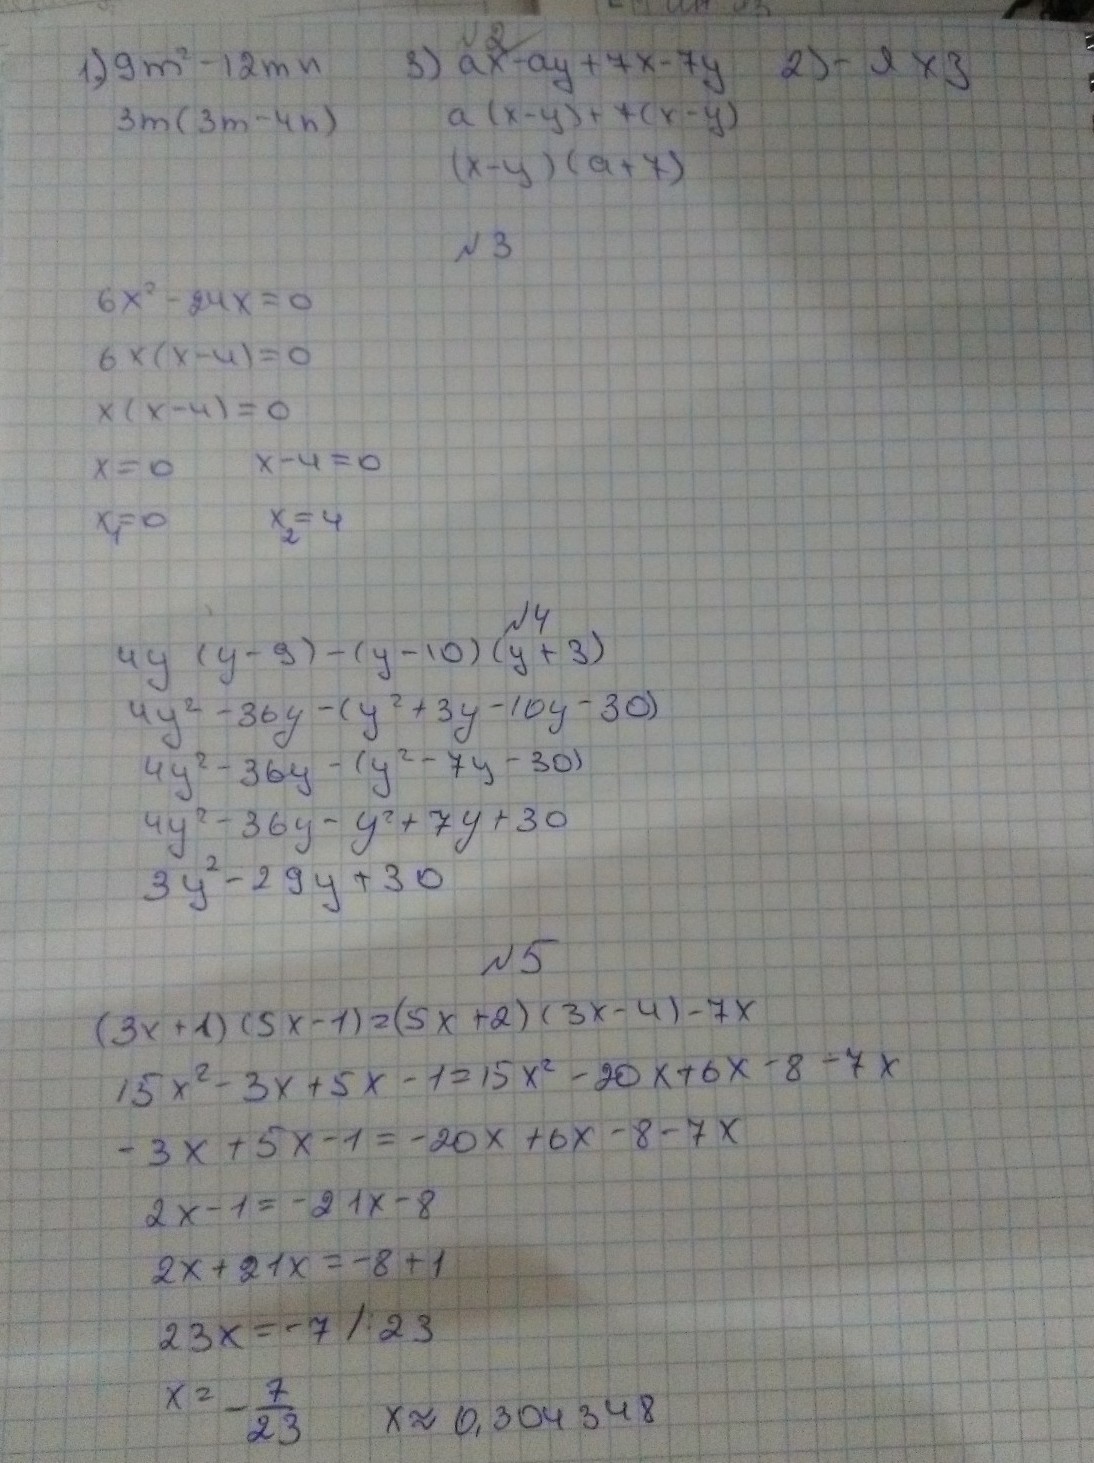 №2
1) 9m² - 12mn
3m(3m-4n)
3) ax-ay+7x-7y
a(x-y)+7(x-y)
(x-y)(a+7)
2) - 2x3
№3
6x² - 24x = 0
6x(x-4)=0
x(x-4)=0
x=0 x-4=0
x₁=0 x₂=4
№4
4y (y-9)-(y-10)(y+3)
4y² -36y-(y²+3y-10y-30)
4y²-36y-(y²-7y-30)
4y²-36y-y²+7y+30
3y²-29y+30
№5
(3x+1)(5x-1)=(5x+2)(3x-4)-7x
15x²-3x+5x-1=15x²-20x+6x-8-7x
-3x+5x-1=-20x+6x-8-7x
2x-1=-21x-8
2x+21x=-8+1
23x=-7 /:23
x=-7/23 x≈0,304348